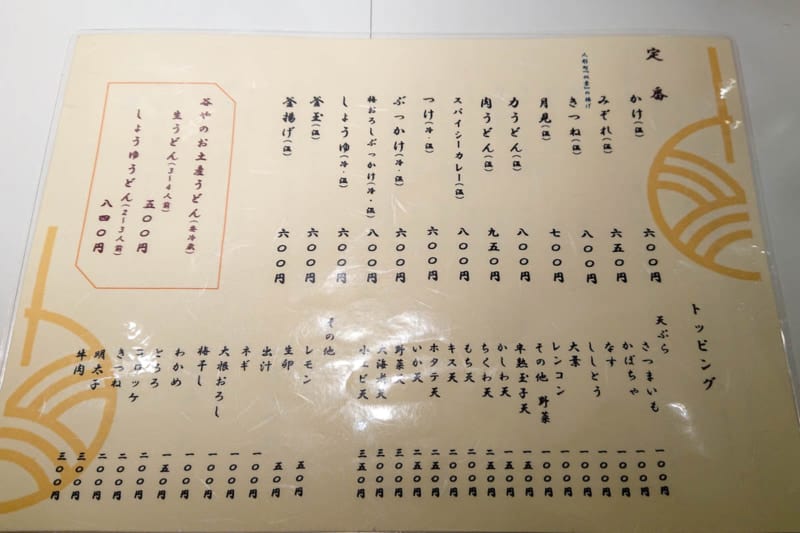 定番
かけ(温) 六〇〇円
みぞれ(温) 六五〇円
人形町「双葉」の揚げ
きつね(温) 八〇〇円
月見(温) 七〇〇円
力うどん(温) 八〇〇円
肉うどん(温) 九五〇円
スパイシーカレー(温) 八〇〇円
つけ(冷・温) 六〇〇円
ぶっかけ(冷・温) 六〇〇円
梅おろしぶっかけ(冷・温) 八〇〇円
しょうゆ(冷・温) 六〇〇円
釜玉(温) 六〇〇円
釜揚げ(温) 六〇〇円
谷やのお土産うどん(要冷蔵)
生うどん(3~4人前)
五〇〇円
しょうゆうどん(2~3人前)
八四〇円
トッピング
天ぷら
さつまいも 一〇〇円
かぼちゃ 一〇〇円
なす 一〇〇円
ししとう 一〇〇円
大葉 一〇〇円
レンコン 一〇〇円
その他 野菜 一〇〇円
半熟玉子天 一五〇円
かしわ天 一五〇円
ちくわ天 二五〇円
もち天 二〇〇円
キス天 二〇〇円
ホタテ天 二五〇円
いか天 二五〇円
野菜天 三〇〇円
大海老天 三五〇円
小エビ天 三五〇円
その他
レモン 五〇円
生卵 五〇円
出汁 一〇〇円
ネギ 一〇〇円
大根おろし 一〇〇円
梅干し 一〇〇円
わかめ 一五〇円
とろろ 二〇〇円
コロッケ 二〇〇円
きつね 二〇〇円
明太子 三〇〇円
牛肉 三〇〇円